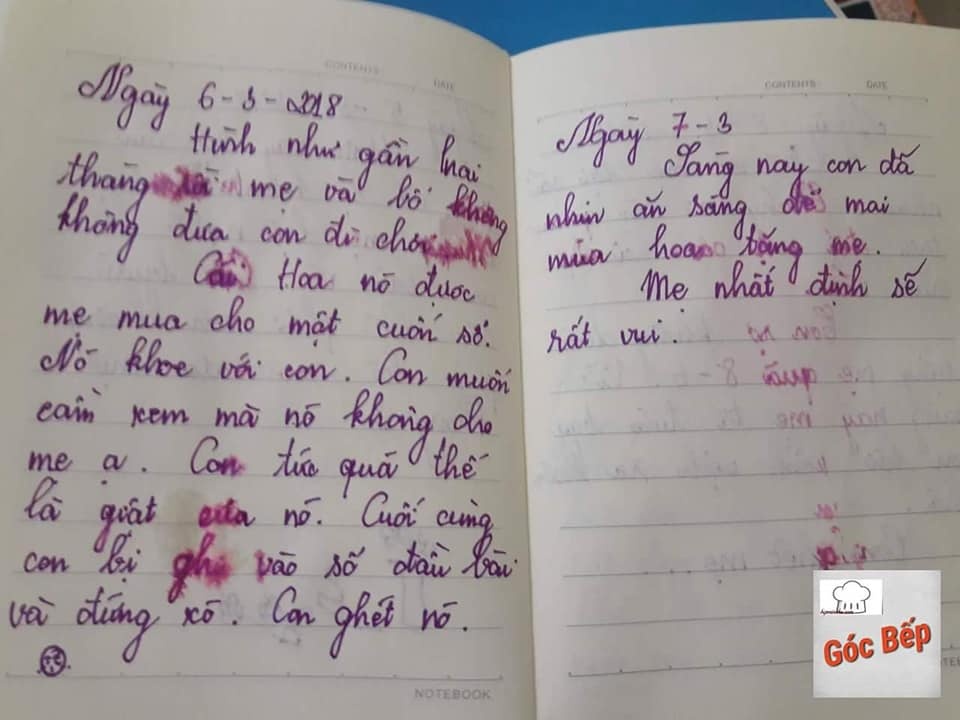 CONTENTS DATE
Ngày 6-3-2018
Hình như gần hai
tháng rồi mẹ và bố không
không đưa con đi chơi
Cái Hoa nó được
mẹ mua cho một cuốn sổ.
Nó khoe với con. Con muốn
cầm xem mà nó không cho
mẹ ạ. Con tức quá thế
là giật của nó. Cuối cùng
con bị ghi vào sổ đầu bài
và đứng xó. Con ghét nó.
NOTEBOOK
CONTENTS DATE
Ngày 7-3
Sáng nay con đã
nhịn ăn sáng để mai
mua hoa tặng mẹ.
Mẹ nhất định sẽ
rất vui.
Góc Bếp